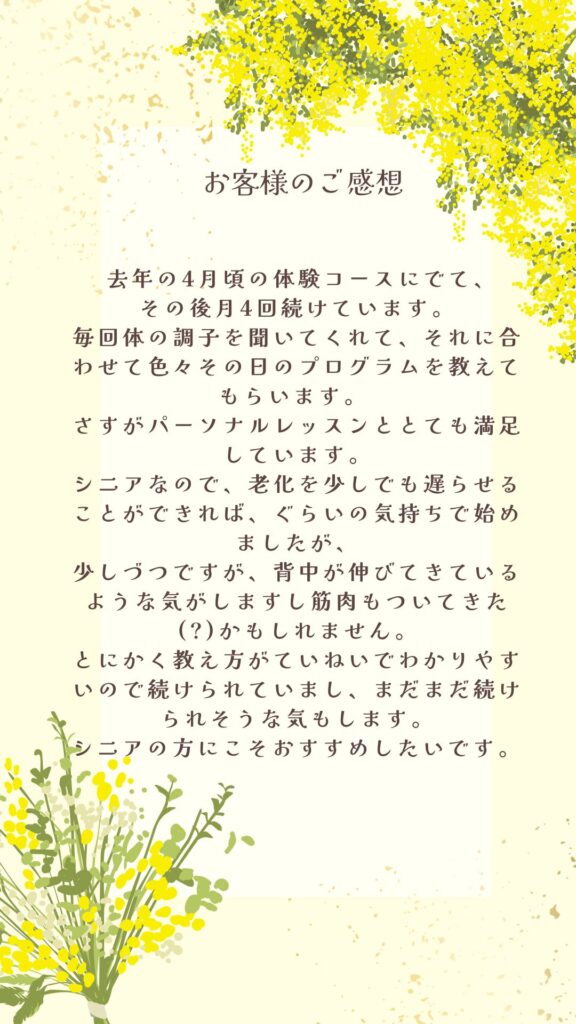 お客様のご感想
去年の4月頃の体験コースにでて、
その後月4回続けています。
毎回体の調子を聞いてくれて、それに合
わせて色々その日のプログラムを教えて
もらいます。
さすがパーソナルレッスンととても満足
しています。
シニアなので、老化を少しでも遅らせる
ことができれば、ぐらいの気持ちで始め
ましたが、
少しづつですが、背中が伸びてきている
ような気がしますし筋肉もついてきた
(?)かもしれません。
とにかく教え方がていねいでわかりやす
いので続けられていまし、まだまだ続け
られそうな気もします。
シニアの方にこそおすすめしたいです。